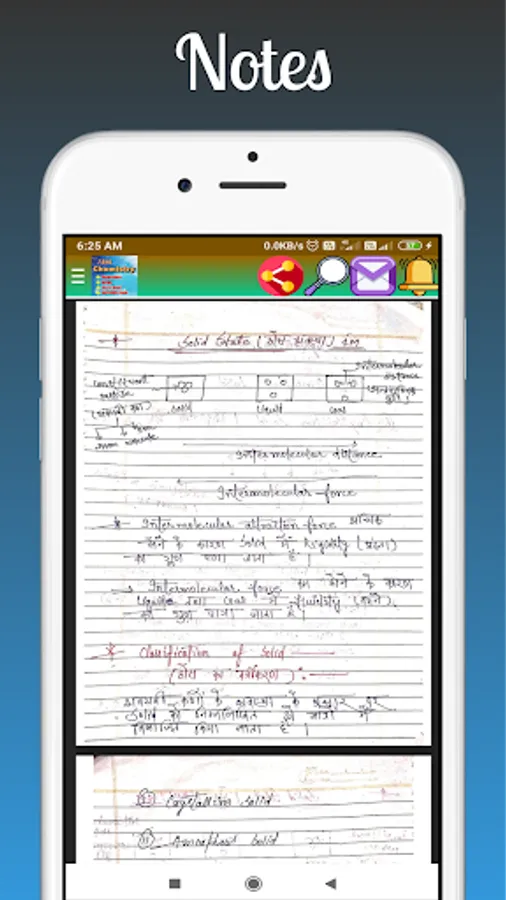 Notes
6:25 AM
0.0KB/s
Chemistry
Solid State (ठोस अवस्था)
Intermolecular
distance
Solid
Liquid
Gas
Intermolecular distance
Intermolecular force
Intermolecular attraction force अधिक
होने के कारण Solid में Rigidity (दृढ़ता)
का गुण पाया जाता है।
Intermolecular force कम होने के कारण
Liquid तथा Gas में fluidity
का गुण पाया जाता है।
Classification of Solid
(ठोस का वर्गीकरण) :-
अवयवी कणों के व्यवस्था के आधार पर
Solid को निम्नलिखित दो भागों में
विभाजित किया जाता है।
(I) Crystalline Solid
(II) Amorphous Solid